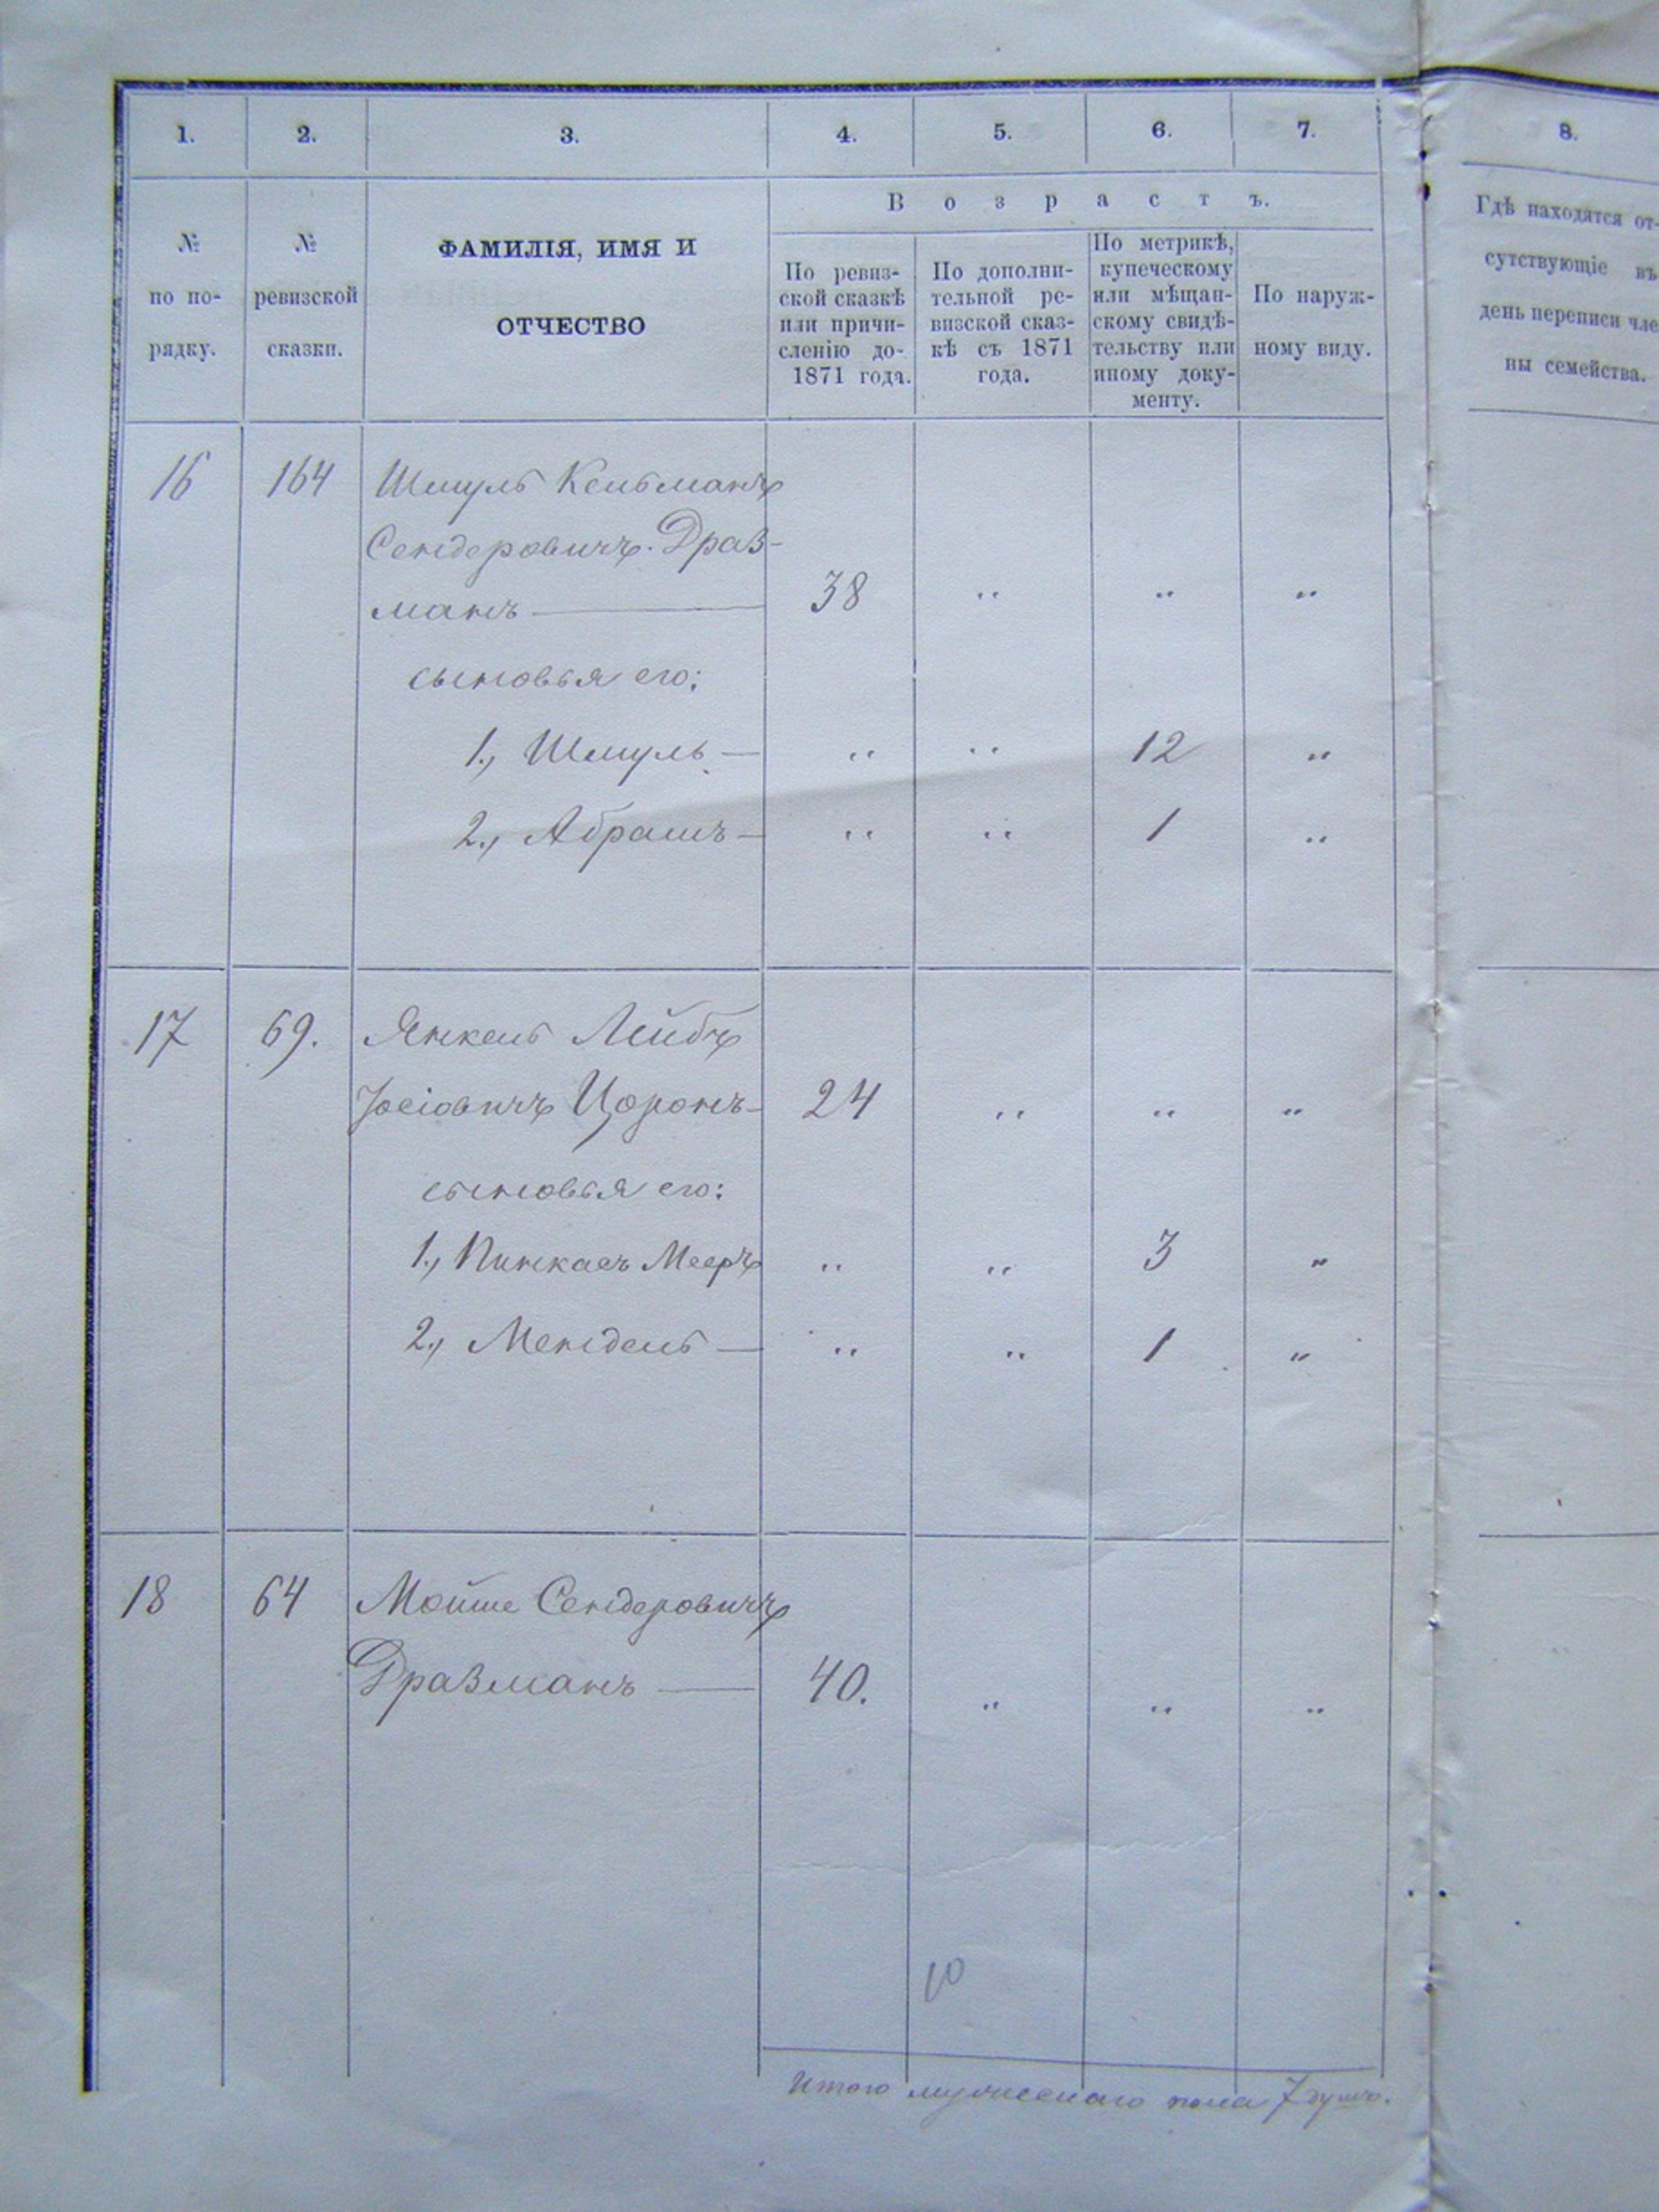 1. 2. 3. 4. 5. 6. 7. 8.
№ по по-рядку.
№ ревизской сказки.
ФАМИЛІЯ, ИМЯ И
ОТЧЕСТВО
Возрастъ.
По ревиз-
ской сказкѣ
или причи-
сленію до
1871 года.
По дополни-
тельной ре-
визской сказ-
кѣ съ 1871
года.
По метрикѣ,
купеческому
или мѣщан-
скому свидѣ-
тельству или
иному доку-
менту.
По наруж-
ному виду.
Гдѣ находятся от-
сутствующіе въ
день переписи чле
ны семейства.
16 164 Шмуль Кельманъ
Сендеровичъ Драз-
манъ — 38 " " "
сыновья его:
1., Шмуль — " " 12 "
2., Абрамъ — " " 1 "
17 69. Янкель Лейбъ
Іосіовичъ Цоронъ — 24 " " "
сыновья её:
1., Пинкасъ Мееръ " " 3 "
2., Мендель — " " 1 "
18 64 Мойше Сендеровичъ
Дразманъ — 40. " " "
10
Итого мужескаго пола 7 душъ.